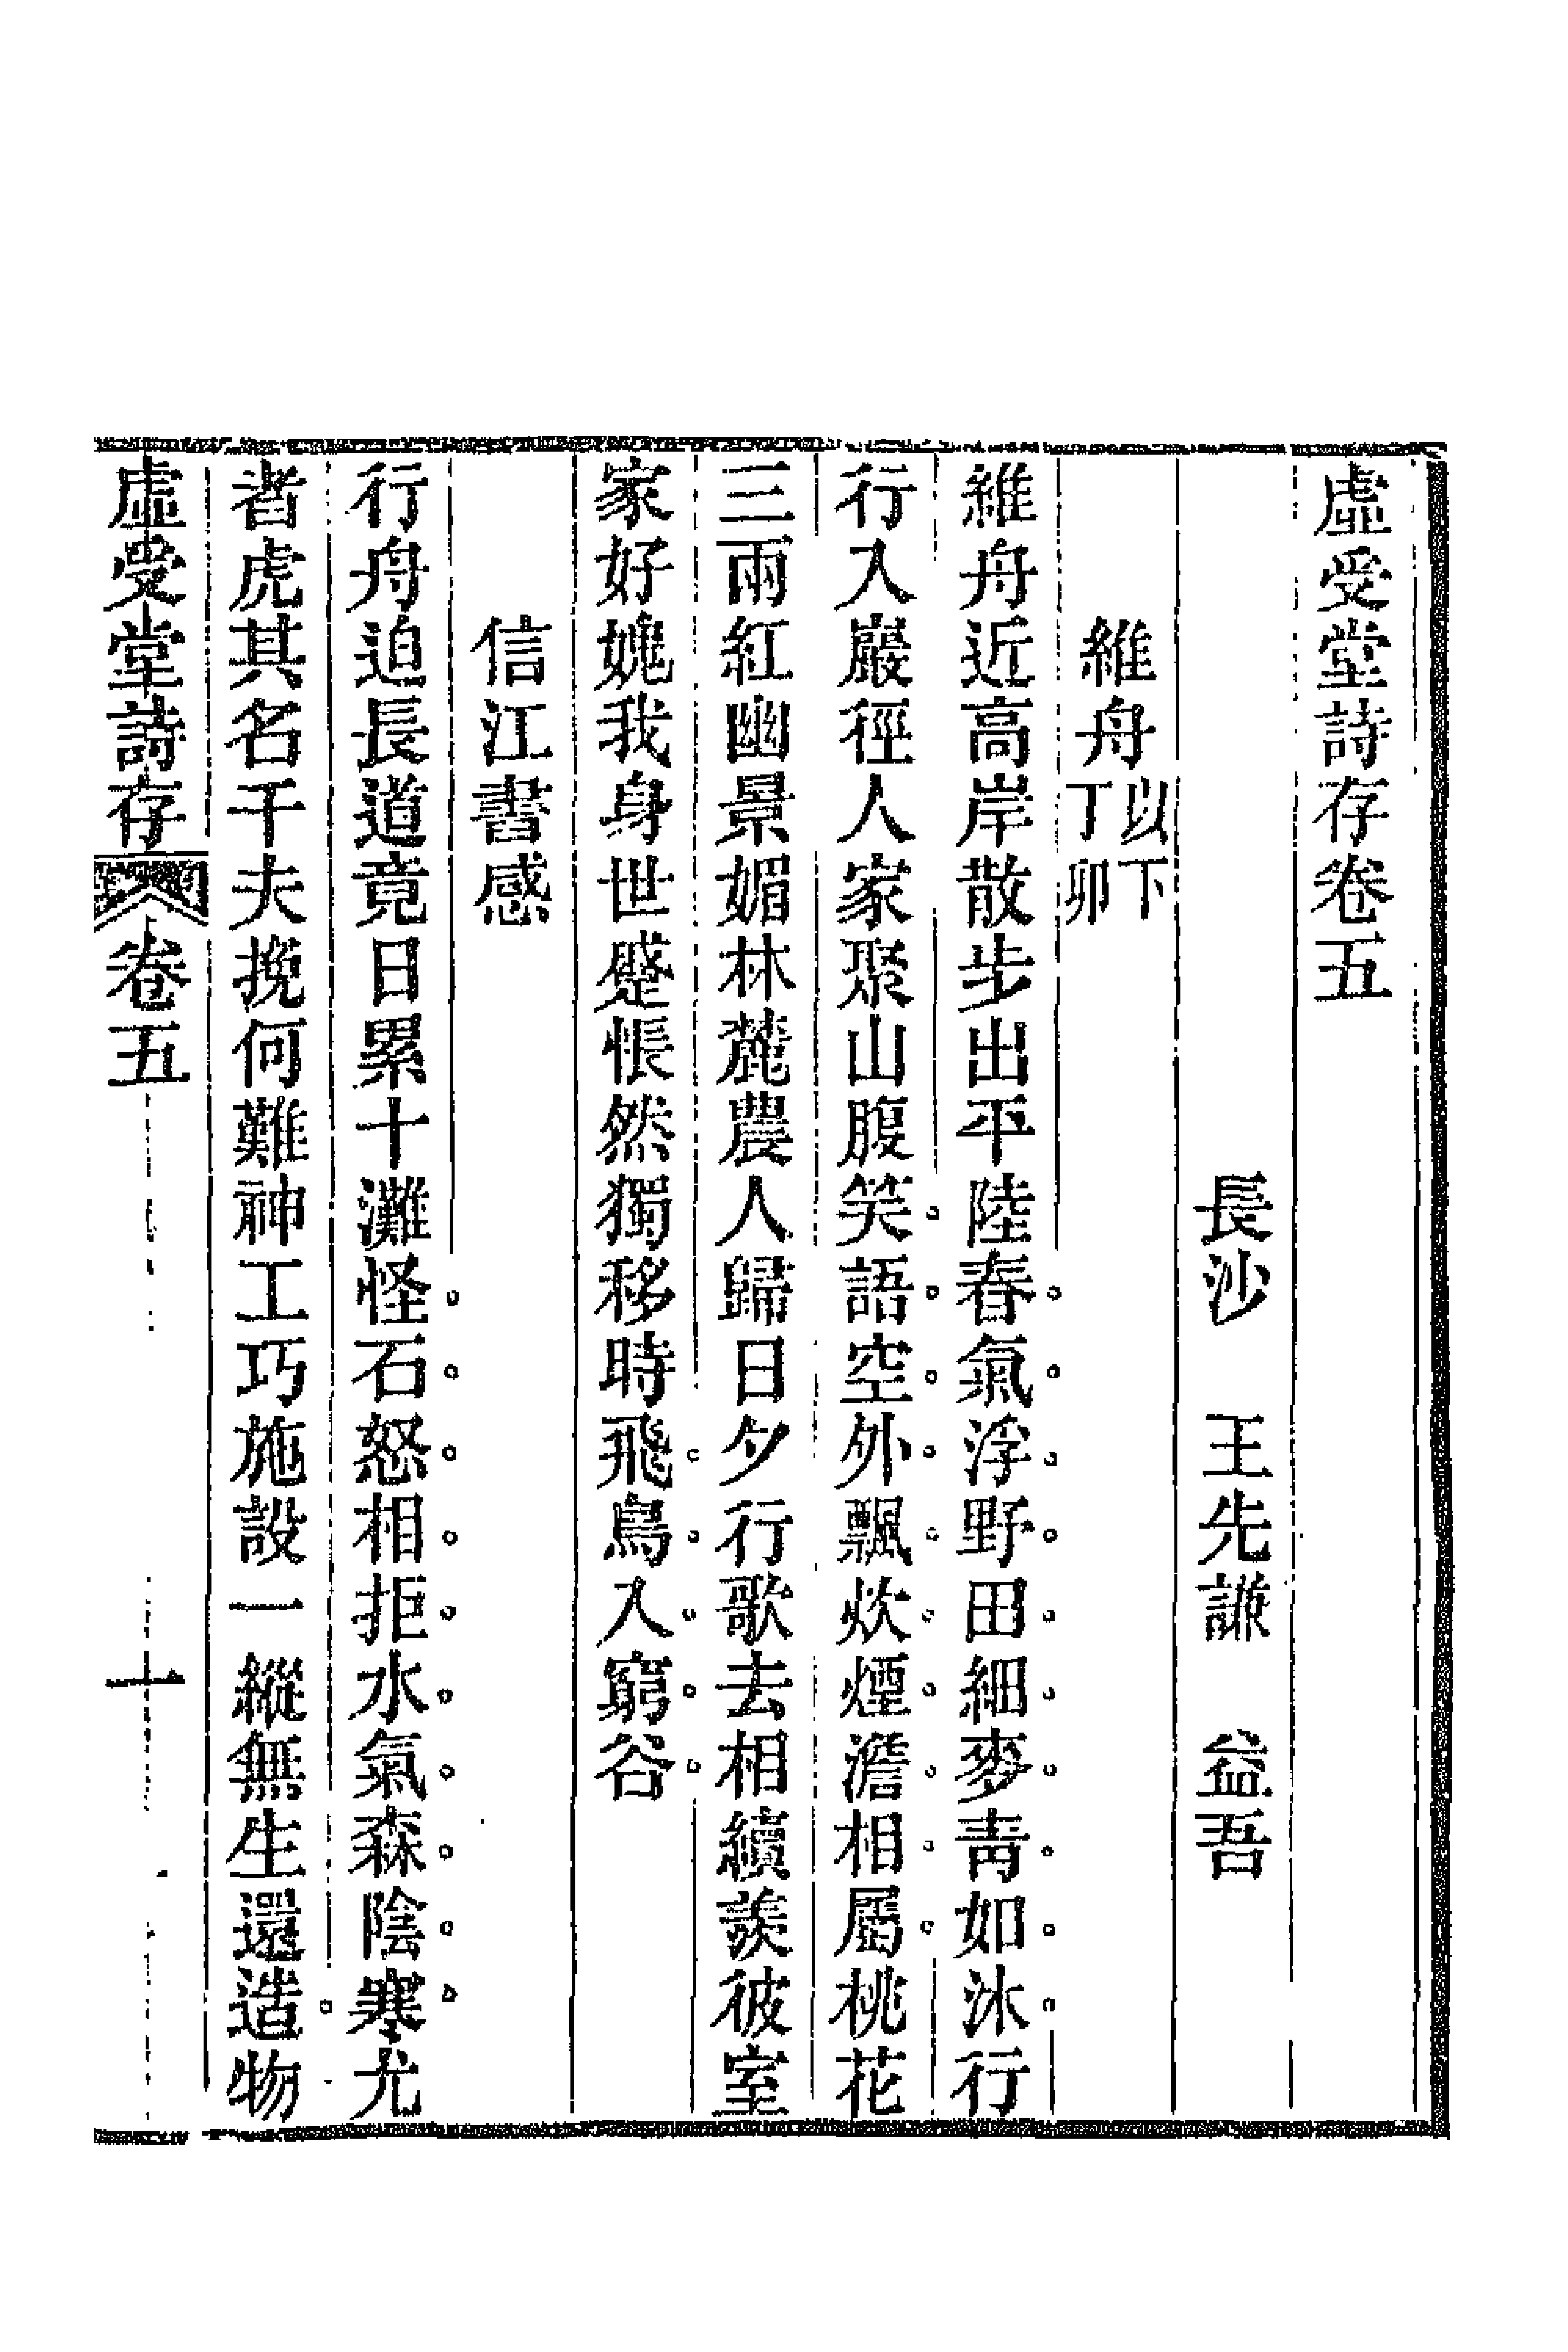 虛受堂詩存卷五
長沙　王先謙　益吾
維舟以下丁卯
維舟近高岸散步出平陸春氣浮野田細麥靑如沐行
行入巖徑人家聚山腹笑語空外飄炊煙澹相屬桃花
三兩紅幽景媚林麓農人歸日夕行歌去相續羨彼室
家好媿我身世蹙悵然獨移時飛鳥入窮谷
信江書感
行舟迫長道竟日累十灘怪石怒相拒水氣森陰寒尤
者虎其名千夫挽何難神工巧施設一縱無生還造物
虛受堂詩存　卷五　十